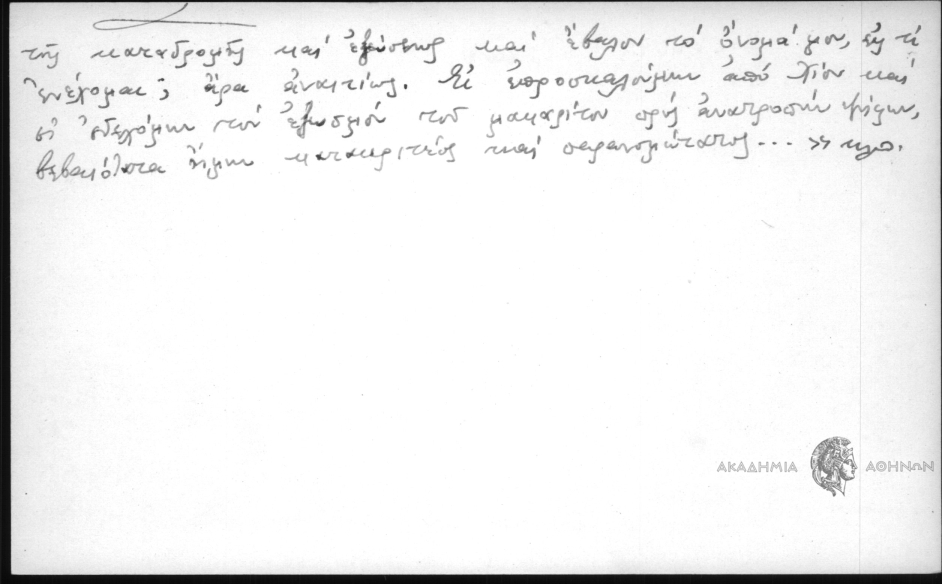 τῆς καταδρομῆς καὶ ἐξώσεως καὶ ἔβαλον τὸ ὄνομά μου, εἰς τί
ἐνέχομαι; ἄρα ἀναιτίως. Εἰ ἐπροσκαλούμην ἀπὸ Χίον καὶ
εἰ ἐδεχόμην τὸν ἐξωσμὸν τοῦ μακαρίτου πρὸς ἀνατροπὴν
βεβαιότατα ἤμην κατακριτέος καὶ παρανομώτατος... » κλπ.
ΑΚΑΔΗΜΙΑ ΑΘΗΝΩΝ